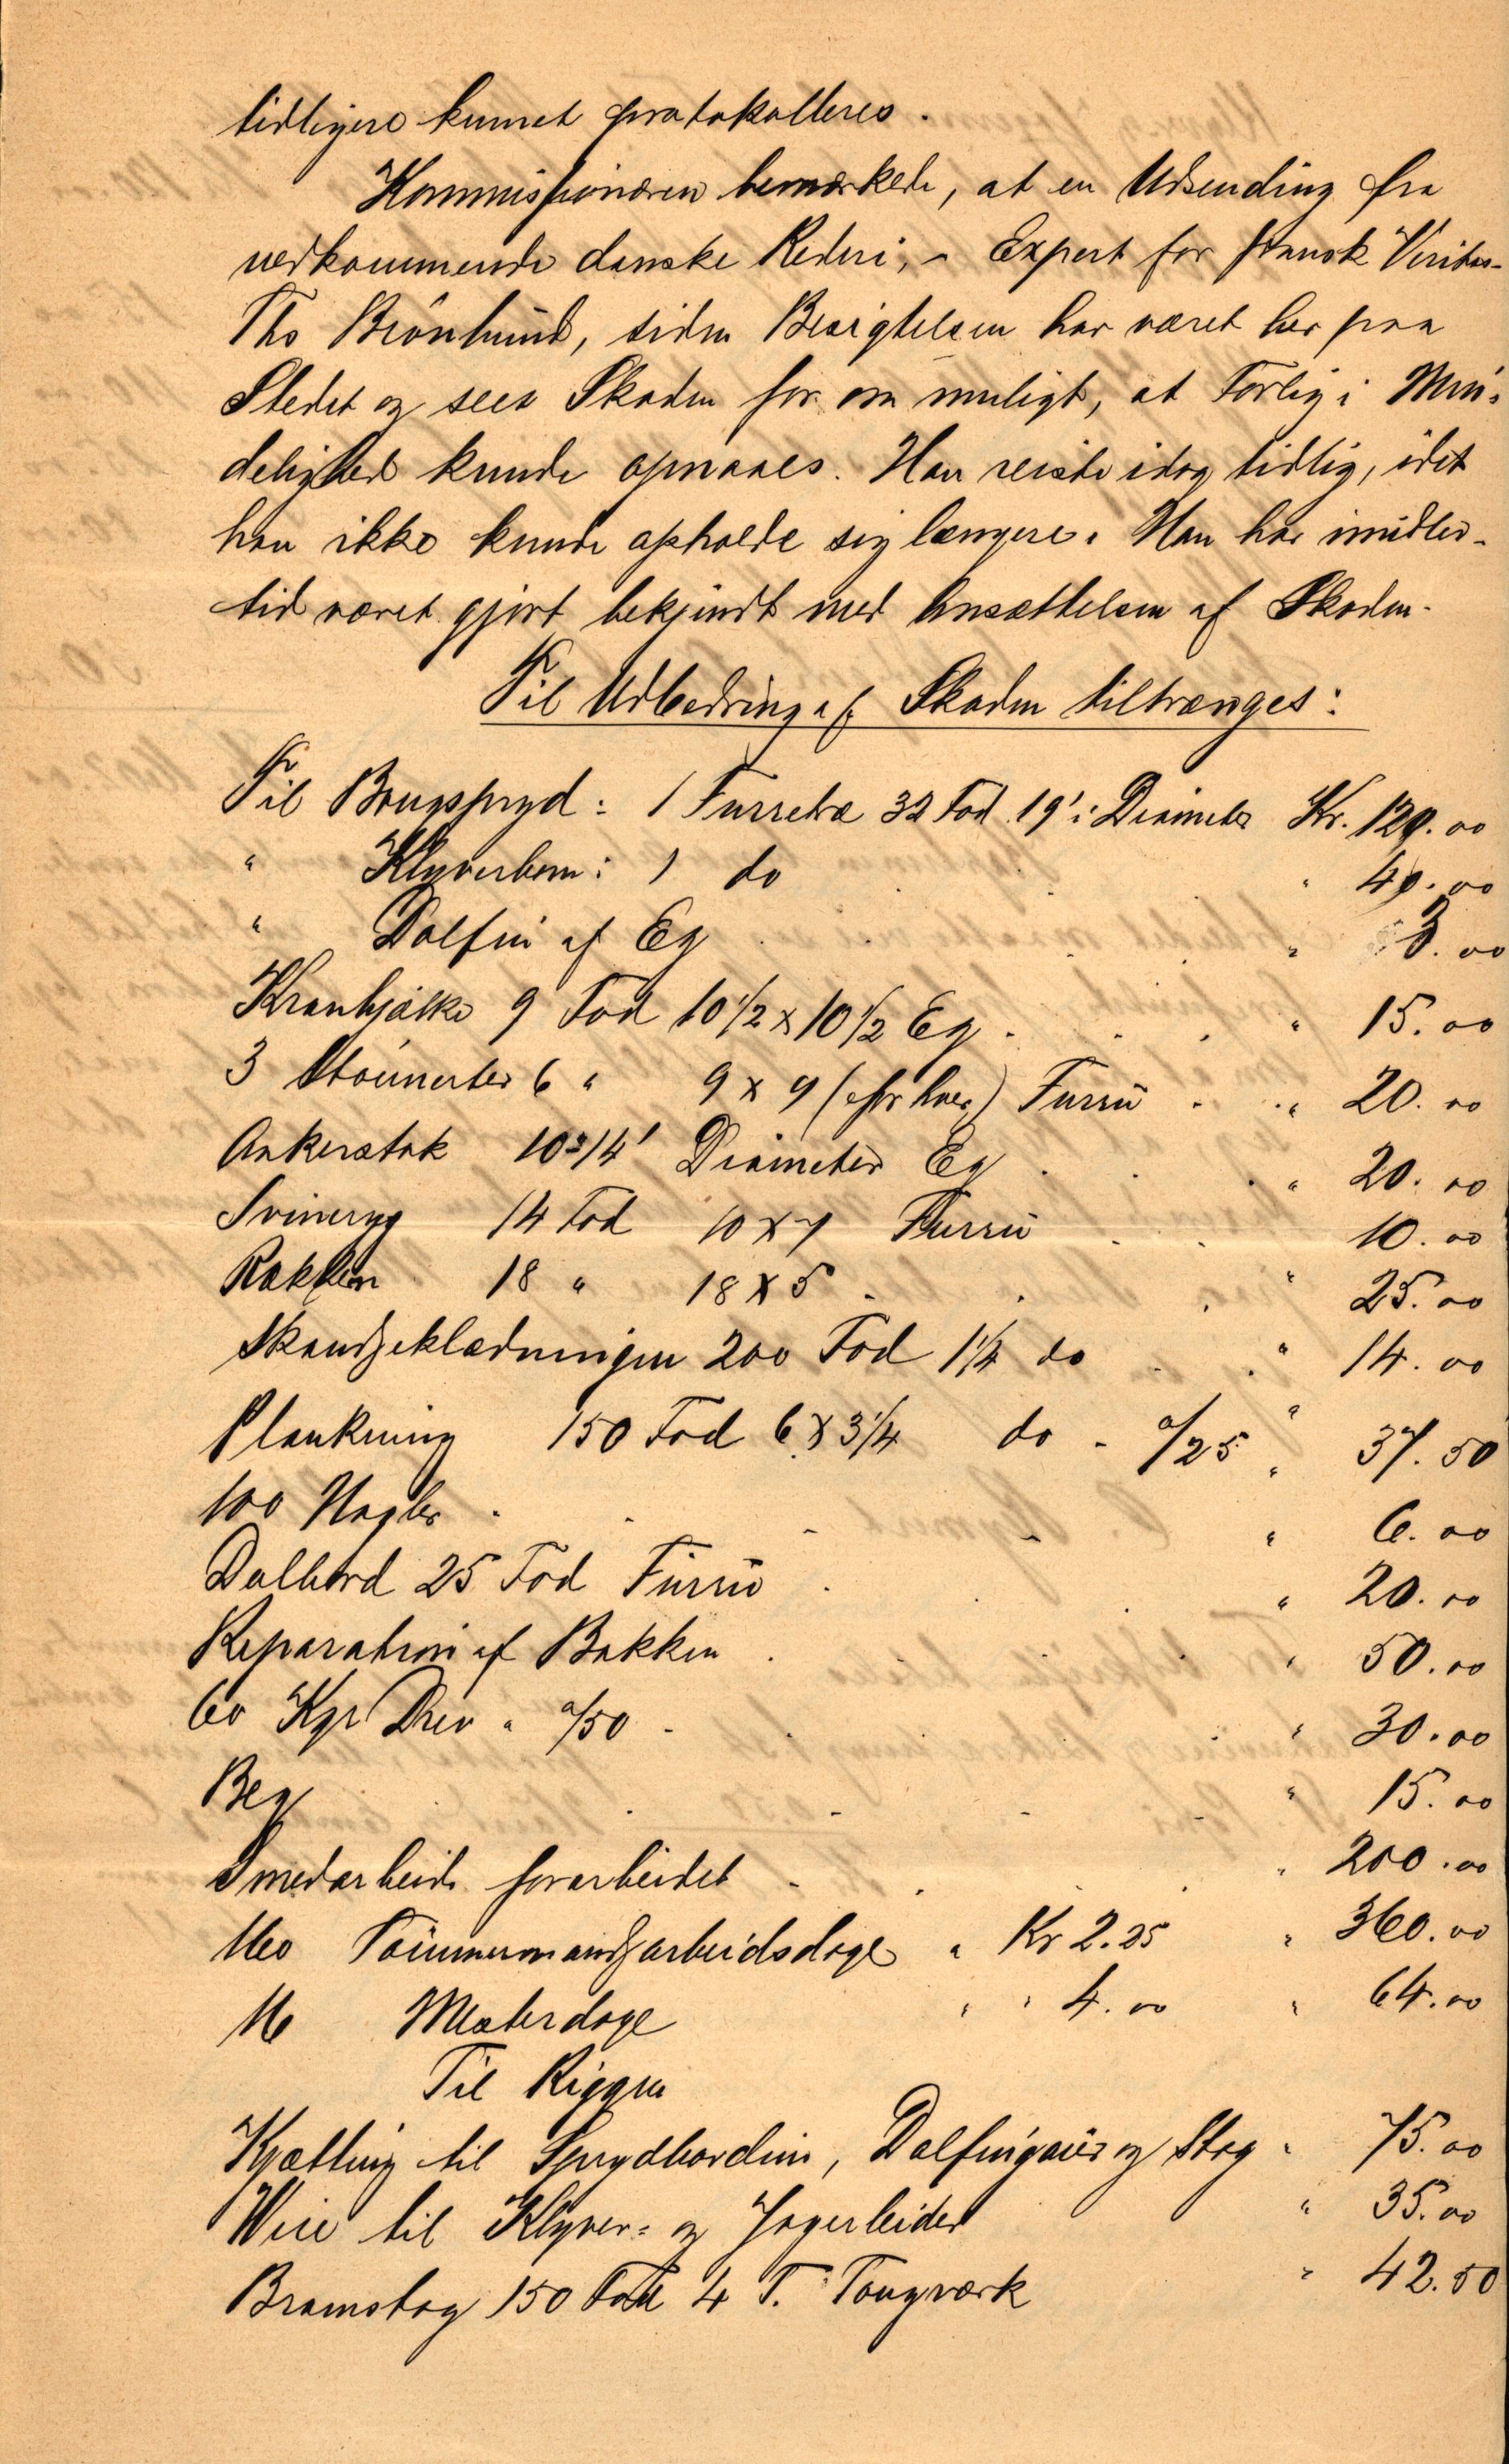 tidligere kunnet protokolleres.
Kommissionæren bemærkede, at en Udsending fra
vedkommende danske Rederi, - Expert for fransk Veritas-
Ths Brönlund, siden Besigtelsen har været her paa
Stedet og seet Skaden for om muligt, at Forlig i Min-
delighed kunde opnaaes. Han reiste idag tidlig, idet
han ikke kunde opholde sig længere. Han har imidler-
tid været gjort bekjendt med Ansættelsen af Skaden.
Til Udbedring af Skaden tiltrænges:
Til Bougspryd: 1 Furretræ 32 Fod 19' i Diameter Kr. 120.00
" Klyverbom: 1 do " 40.00
" Dolfin af Eg " 3.00
Kranbjälke 9 Fod 10 1/2 x 10 1/2 Eg " 15.00
3 Stöinerter 6 " 9 x 9 (for hver) Furru " 20.00
Ankerstok 10 = 14' Diameter Eg " 20.00
Svineryg 14 Fod 10 x 7 Furru 10.00
Rækken 18 " 18 x 5 " 25.00
Skandseklædningen 200 Fod 1 1/4 do " 14.00
Plankning 150 Fod 6 x 3 1/4 do - a/25 " 37.50
100 Nagler " 6.00
Dalbord 25 Fod Furru " 20.00
Reparation af Bakken " 50.00
60 Kgr Drev " a/50 " 30.00
Beg " 15.00
Smedarbeide forarbeidet " 200.00
160 Tömmermandsarbeidsdage " Kr 2.25 " 360.00
16 Mesterdage " " 4.00 " 64.00
Til Riggen
Kjætting til Sprydbardun, Dolfingaier og Stag " 75.00
Wire til Klyver- og Jagerleider " 35.00
Bramstag 150 Fod 4 T. Tougværk " 42.50